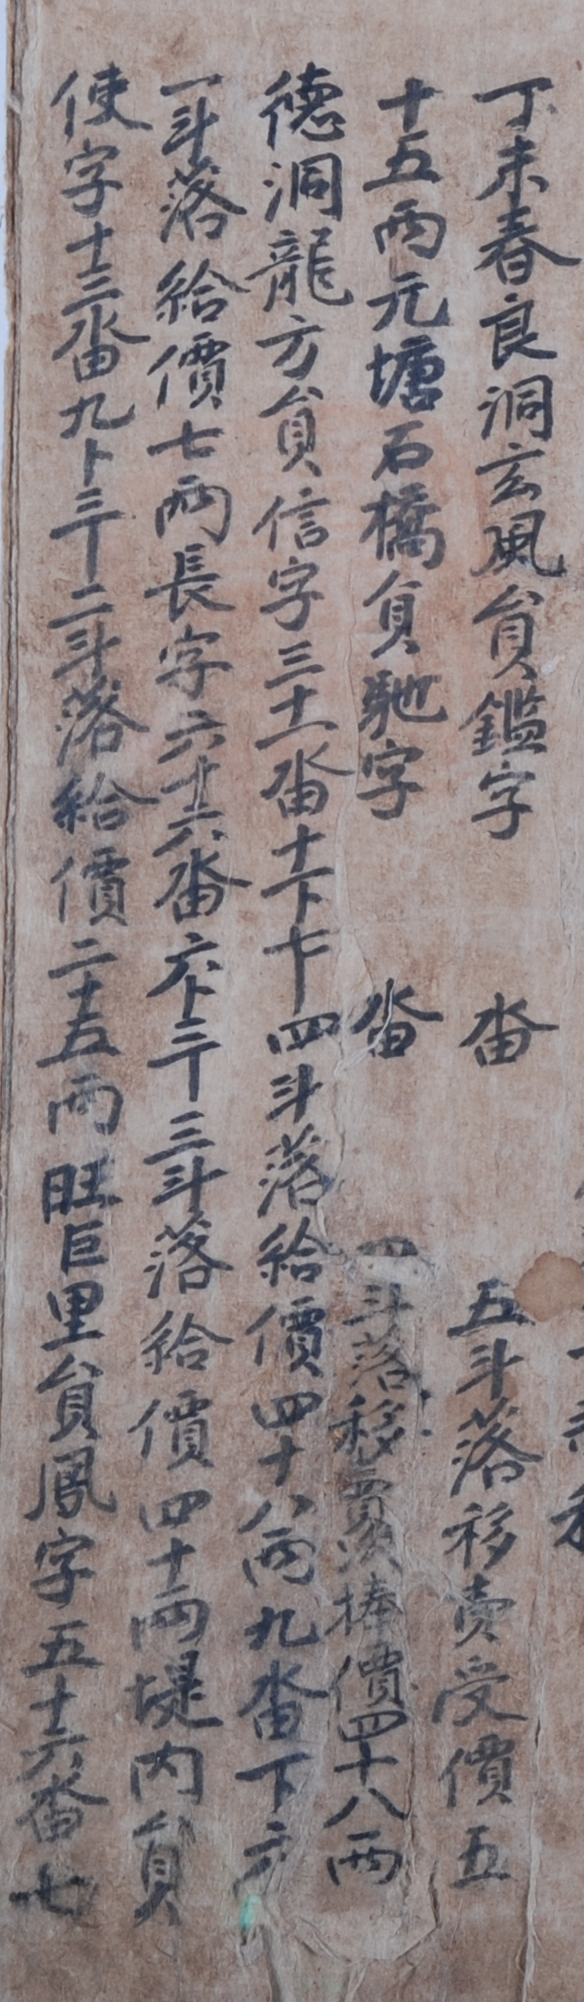 丁未春良洞玄風員鑑字 畓 五斗落移賣受價五
十五兩元塘石橋員馳字 畓 四斗落移賣次捧價四十八兩
德洞龍方員信字三十一畓十卜七卜四斗落給價四十八兩九畓下方
一斗落給價七兩長字六十六畓六卜三卜三斗落給價四十兩堤內員
使字十三畓九卜三卜二斗落給價二十五兩旺巨里員鳳字五十六畓七